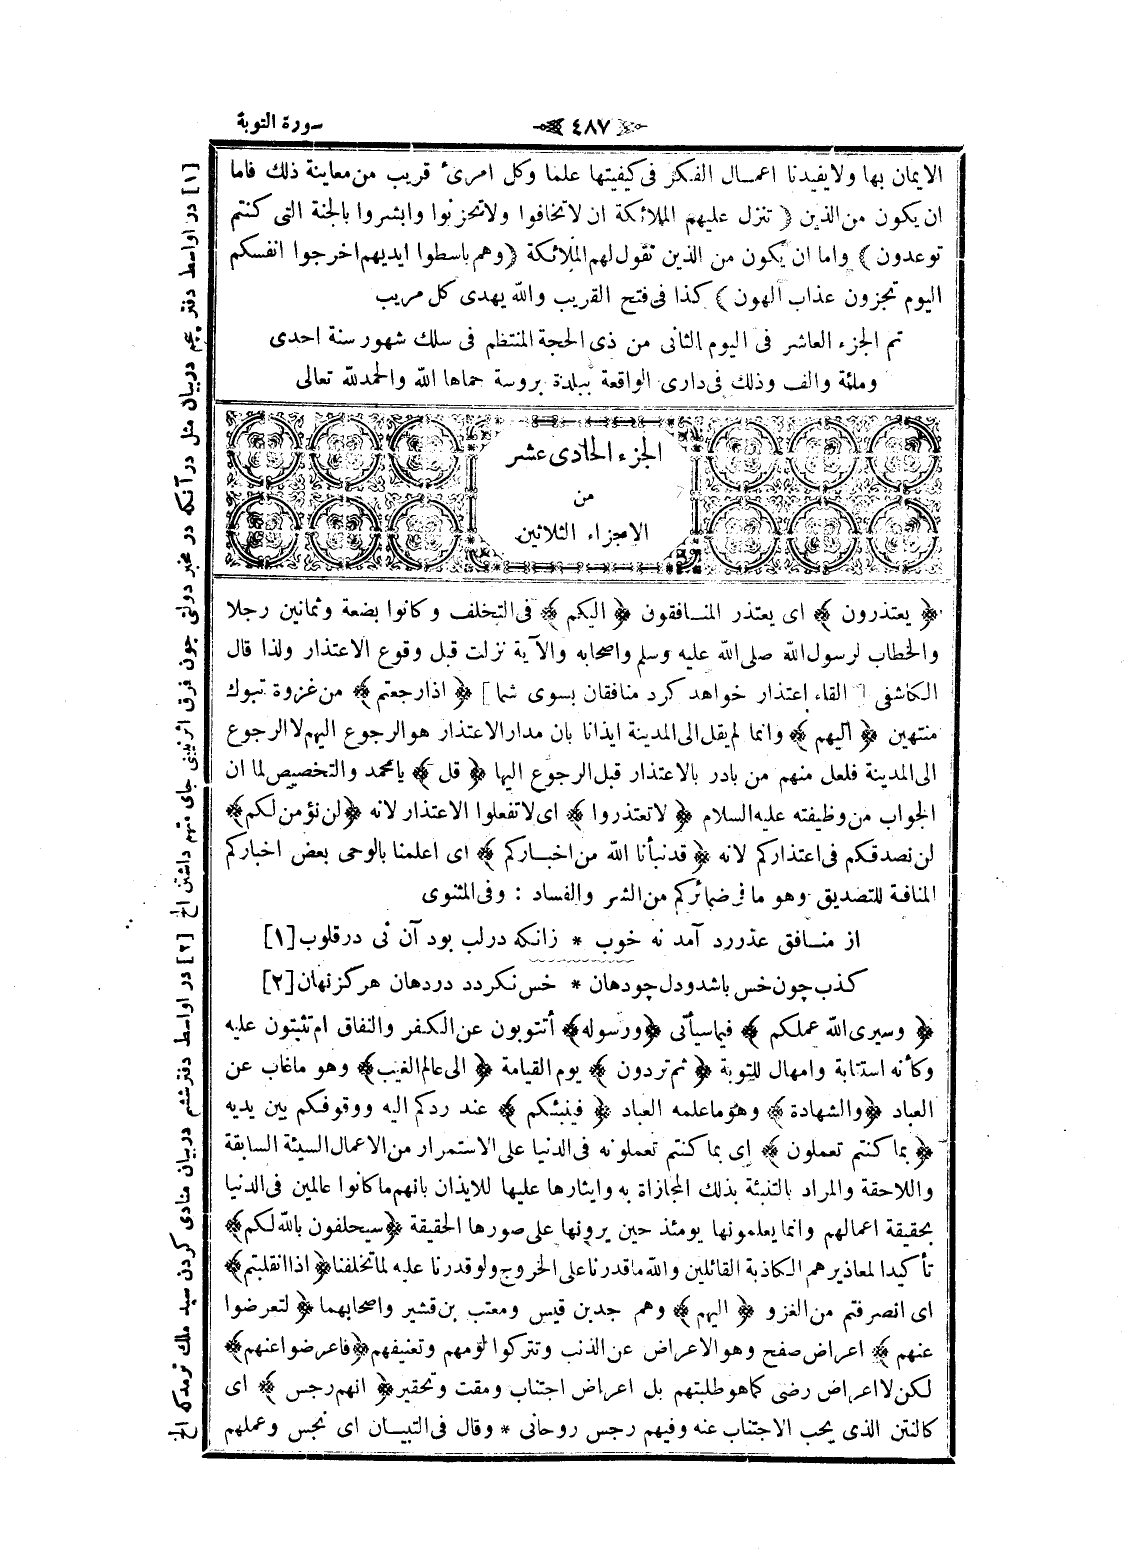 سورة التوبة
٤٨٧
الايمان بها ولايفيدنا اعمال الفكر فى كيفيتها علما وكل امرئ قريب من معاينة ذلك فاما
ان يكون من الذين ( تنزل عليهم الملائكة ان لاتخافوا ولاتحزنوا وابشروا بالجنة التى كنتم
توعدون ) واما ان يكون من الذين تقول لهم الملائكة (وهم باسطوا ايديهم اخرجوا انفسكم
اليوم تجزون عذاب الهون ) كذا فى فتح القريب والله يهدى كل مريب
تم الجزء العاشر فى اليوم الثانى من ذى الحجة المنتظم فى سلك شهور سنة احدى
ومائة والف وذلك فى دارى الواقعة ببلدة بروسة حماها الله والحمدلله تعالى
الجزء الحادى عشر
من
الاجزاء الثلاثين
﴿ يعتذرون ﴾ اى يعتذر المنافقون ﴿ اليكم ﴾ فى التخلف وكانوا بضعة وثمانين رجلا
والخطاب لرسول الله صلى الله عليه وسلم واصحابه والآية نزلت قبل وقوع الاعتذار ولذا قال
الكاشفى [ القاء اعتذار خواهد كرد منافقان بسوى شما ] ﴿ اذا رجعتم ﴾ من غزوة تبوك
منتهين ﴿ اليهم ﴾ وانما لم يقل الى المدينة ايذانا بان مدار الاعتذار هو الرجوع اليهم لا الرجوع
الى المدينة فلعل منهم من بادر بالاعتذار قبل الرجوع اليها ﴿ قل ﴾ يامحمد والتخصيص لما ان
الجواب من وظيفته عليه السلام ﴿ لاتعتذروا ﴾ اى لاتفعلوا الاعتذار لانه ﴿لن نؤمن لكم﴾
لن نصدقكم فى اعتذاركم لانه ﴿ قد نبأنا الله من اخباركم ﴾ اى اعلمنا بالوحى بعض اخباركم
المنافية للتصديق وهو ما فى ضمائركم من الشر والفساد : وفى المثنوى
از منافق عذر رد آمد نه خوب * زانكه درلب بود آن نى درقلوب [١]
كذب چون خس باشد ودل چودهان * خس نكردد دردهان هركزنهان [٢]
﴿ وسيرى الله عملكم ﴾ فيما سيأتى ﴿ورسوله﴾ أتتوبون عن الكفر والنفاق ام تثبتون عليه
وكأنه استتابة وامهال للتوبة ﴿ ثم تردون ﴾ يوم القيامة ﴿ الى عالم الغيب﴾ وهو ماغاب عن
العباد ﴿والشهادة﴾ وهو ماعلمه العباد ﴿ فينبئكم ﴾ عند ردكم اليه ووقوفكم بين يديه
﴿ بما كنتم تعملون ﴾ اى بما كنتم تعملونه فى الدنيا على الاستمرار من الاعمال السيئة السابقة
واللاحقة والمراد بالتنبئة بذلك المجازاة به وايثارها عليها للايذان بانهم ما كانوا عالمين فى الدنيا
بحقيقة اعمالهم وانما يعلمونها يومئذ حين يرونها على صورها الحقيقة ﴿سيحلفون بالله لكم﴾
تأكيدا لمعاذيرهم الكاذبة القائلين والله ماقدرنا على الخروج ولو قدرنا عليه لما تخلفنا﴿ اذا انقلبتم﴾
اى انصرفتم من الغزو ﴿ اليهم ﴾ وهم جد بن قيس ومعتب بن قشير واصحابهما ﴿ لتعرضوا
عنهم ﴾ اعراض صفح وهو الاعراض عن الذنب وتتركوا لومهم وتعنيفهم﴿فاعرضوا عنهم﴾
لكن لا اعراض رضى كما هو طلبتهم بل اعراض اجتناب ومقت وتحقير﴿ انهم رجس ﴾ اى
كالنتن الذى يجب الاجتناب عنه وفيهم رجس روحانى * وقال فى التبيان اى نجس وعملهم
[١] در اواسط دفتر پنجم دربيان مثل در آنكه در مخبر دولتى چون فرق اثر نبينى جاى متهم داشتن الخ [٢] در اواسط دفتر ششم دربيان منادى كردن سيد ملك ترمدكه الخ